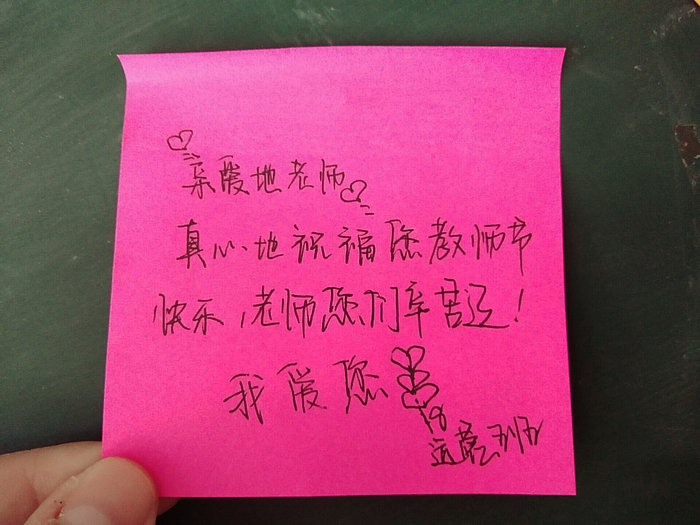 亲爱地老师
真心地祝福您教师节
快乐,老师您们辛苦了!
我爱您
18
班